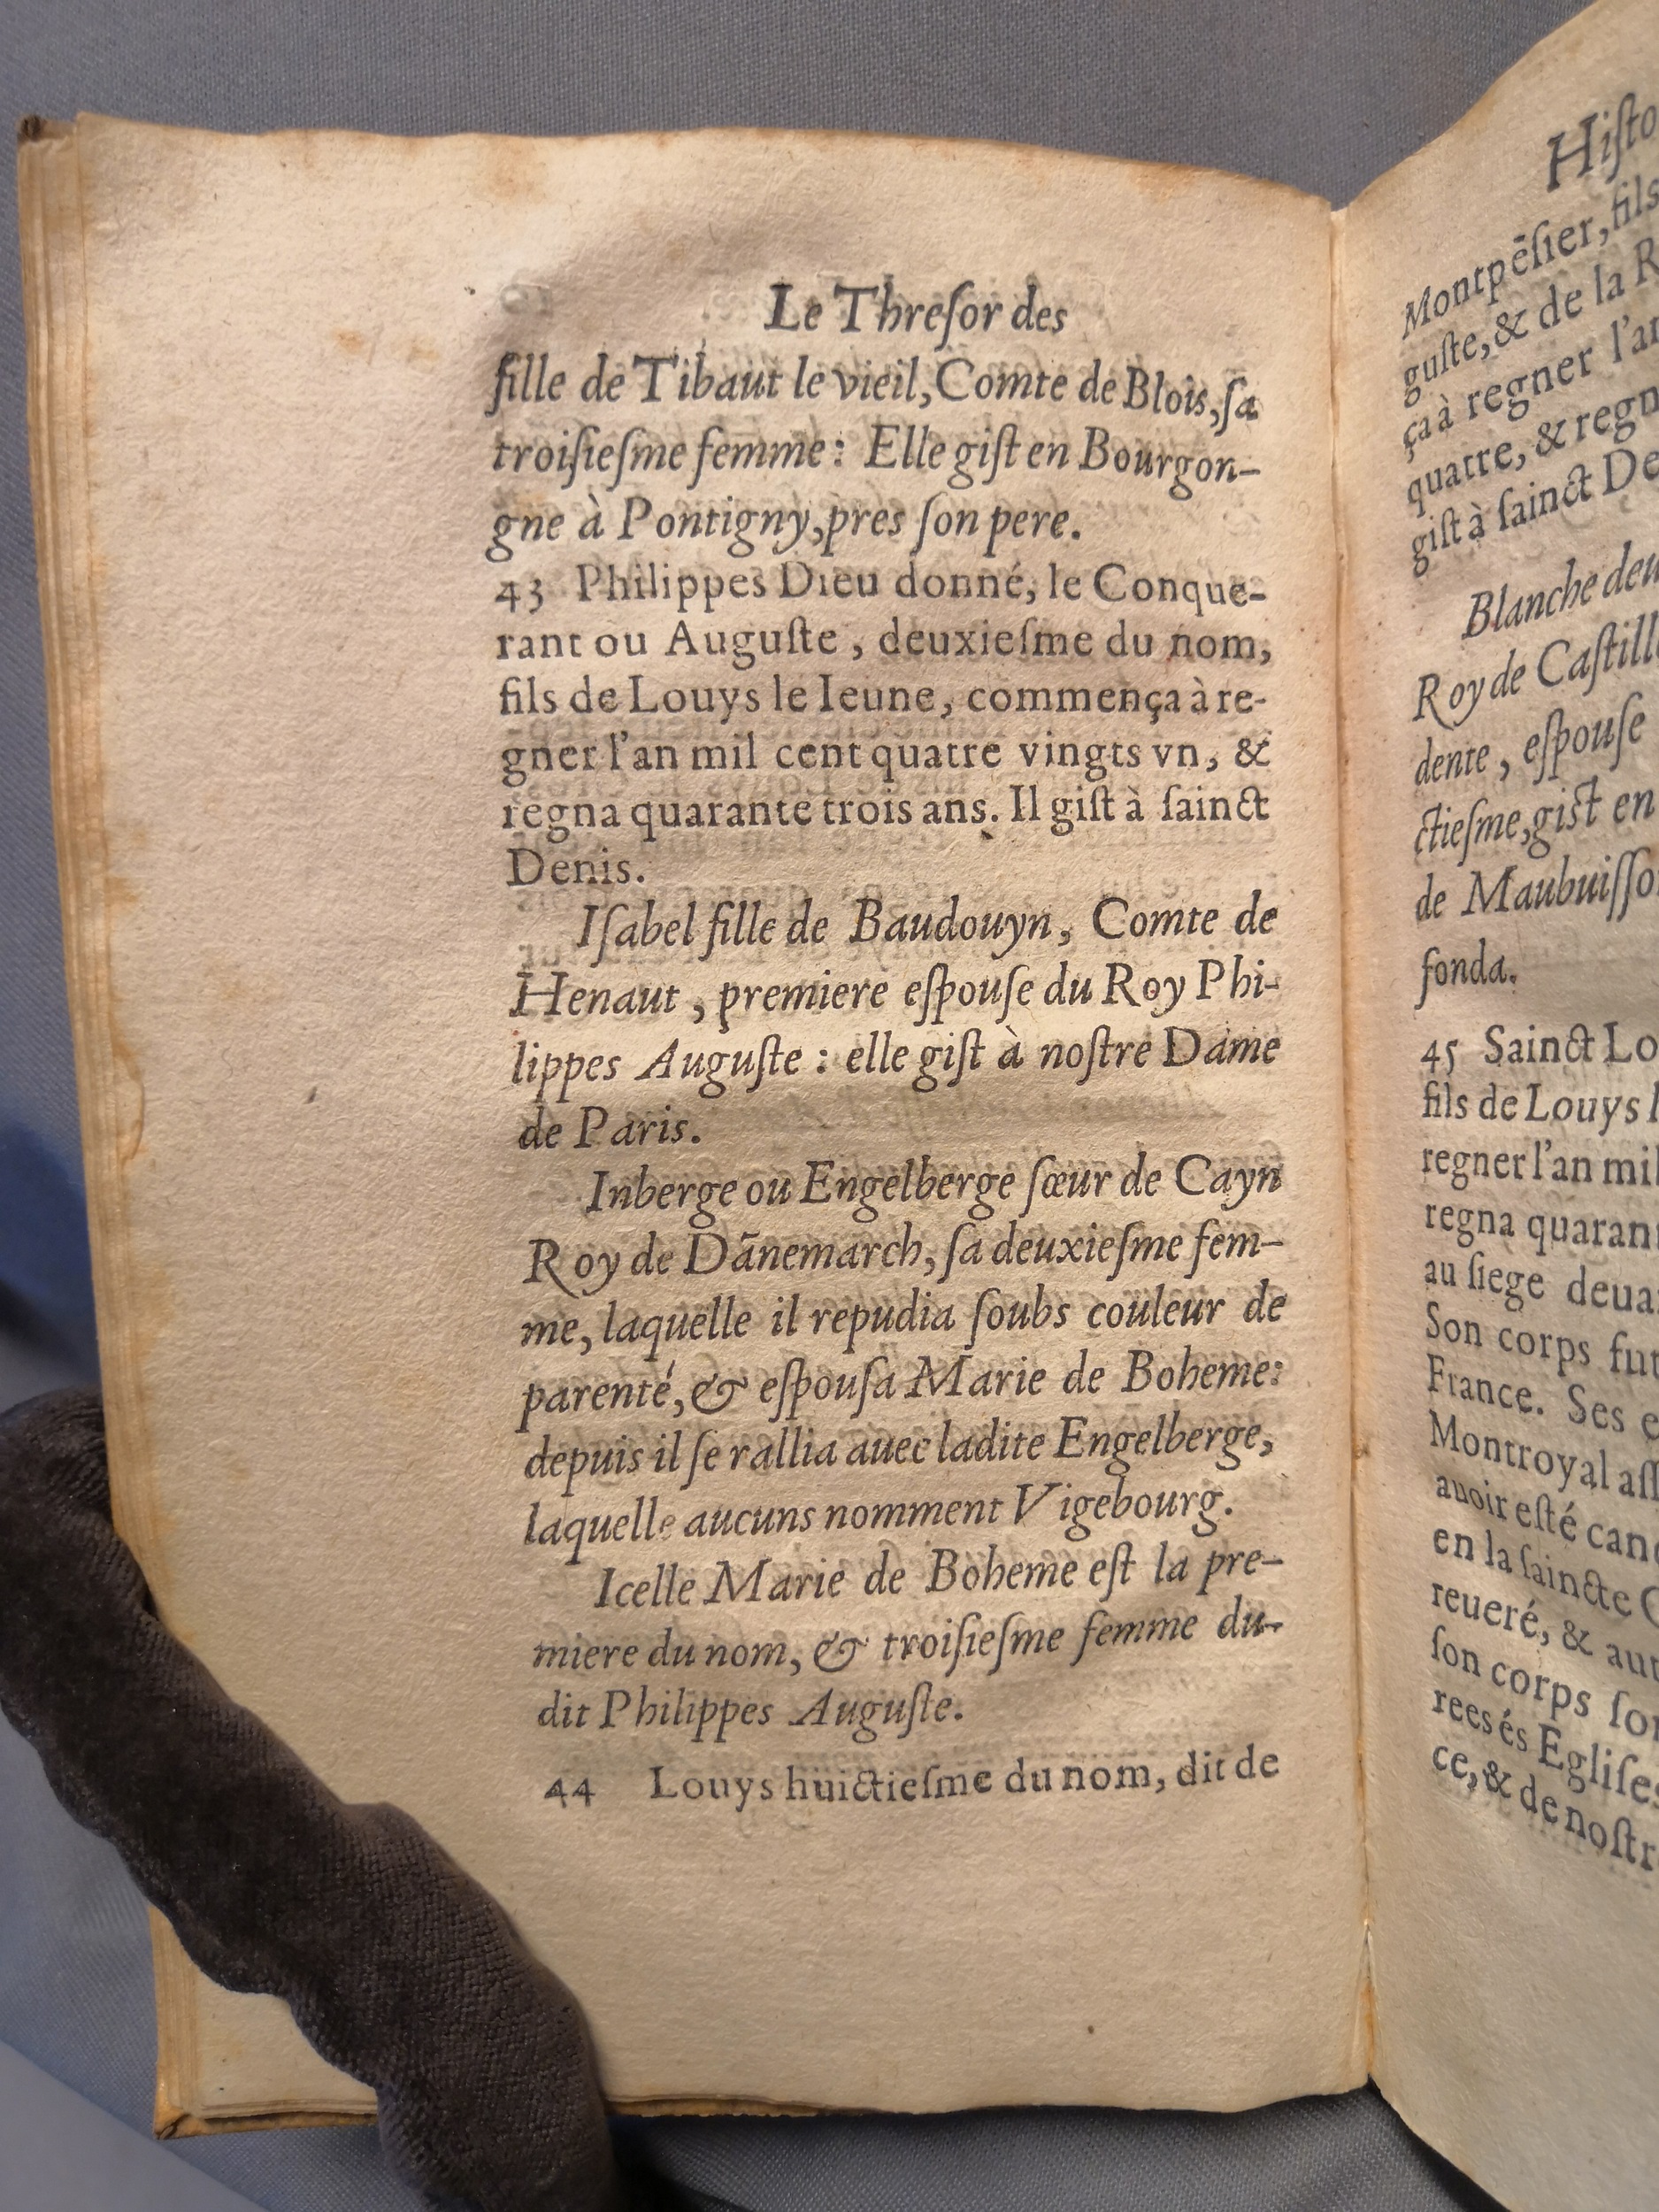 Le Threſor des
fille de Tibaut le vieil, Comte de Blois, ſa
troiſieſme femme: Elle giſt en Bourgon-
gne à Pontigny, pres ſon pere.
43 Philippes Dieu donné, le Conque-
rant ou Auguſte, deuxieſme du nom,
fils de Louys le Ieune, commença à re-
gner l'an mil cent quatre vingts vn, &
regna quarante trois ans. Il giſt à ſainct
Denis.
Iſabel fille de Baudouyn, Comte de
Henaut, premiere eſpouſe du Roy Phi-
lippes Auguſte: elle giſt à noſtre Dame
de Paris.
Inberge ou Engelberge ſœur de Cayn
Roy de Dānemarch, ſa deuxieſme fem-
me, laquelle il repudia ſoubs couleur de
parenté, & eſpouſa Marie de Boheme:
depuis il ſe rallia auec ladite Engelberge,
laquelle aucuns nomment Vigebourg.
Icelle Marie de Boheme eſt la pre-
miere du nom, & troiſieſme femme du-
dit Philippes Auguſte.
44 Louys huictieſme du nom, dit de
Hiſto
Montpēſier, fils
guſte, & de la R
ça à regner l'an
quatre, & regn
giſt à ſainct De
Blanche deu
Roy de Caſtille
dente, eſpouſe
ctieſme, giſt en
de Maubuiſſo
fonda.
45 Sainct Lo
fils de Louys l
regner l'an mil
regna quaran
au ſiege deua
Son corps fut
France. Ses e
Montroyal aſſ
auoir eſté can
en la ſaincte C
reueré, & aut
ſon corps ſo
rees és Egliſes
ce, & de noſtr